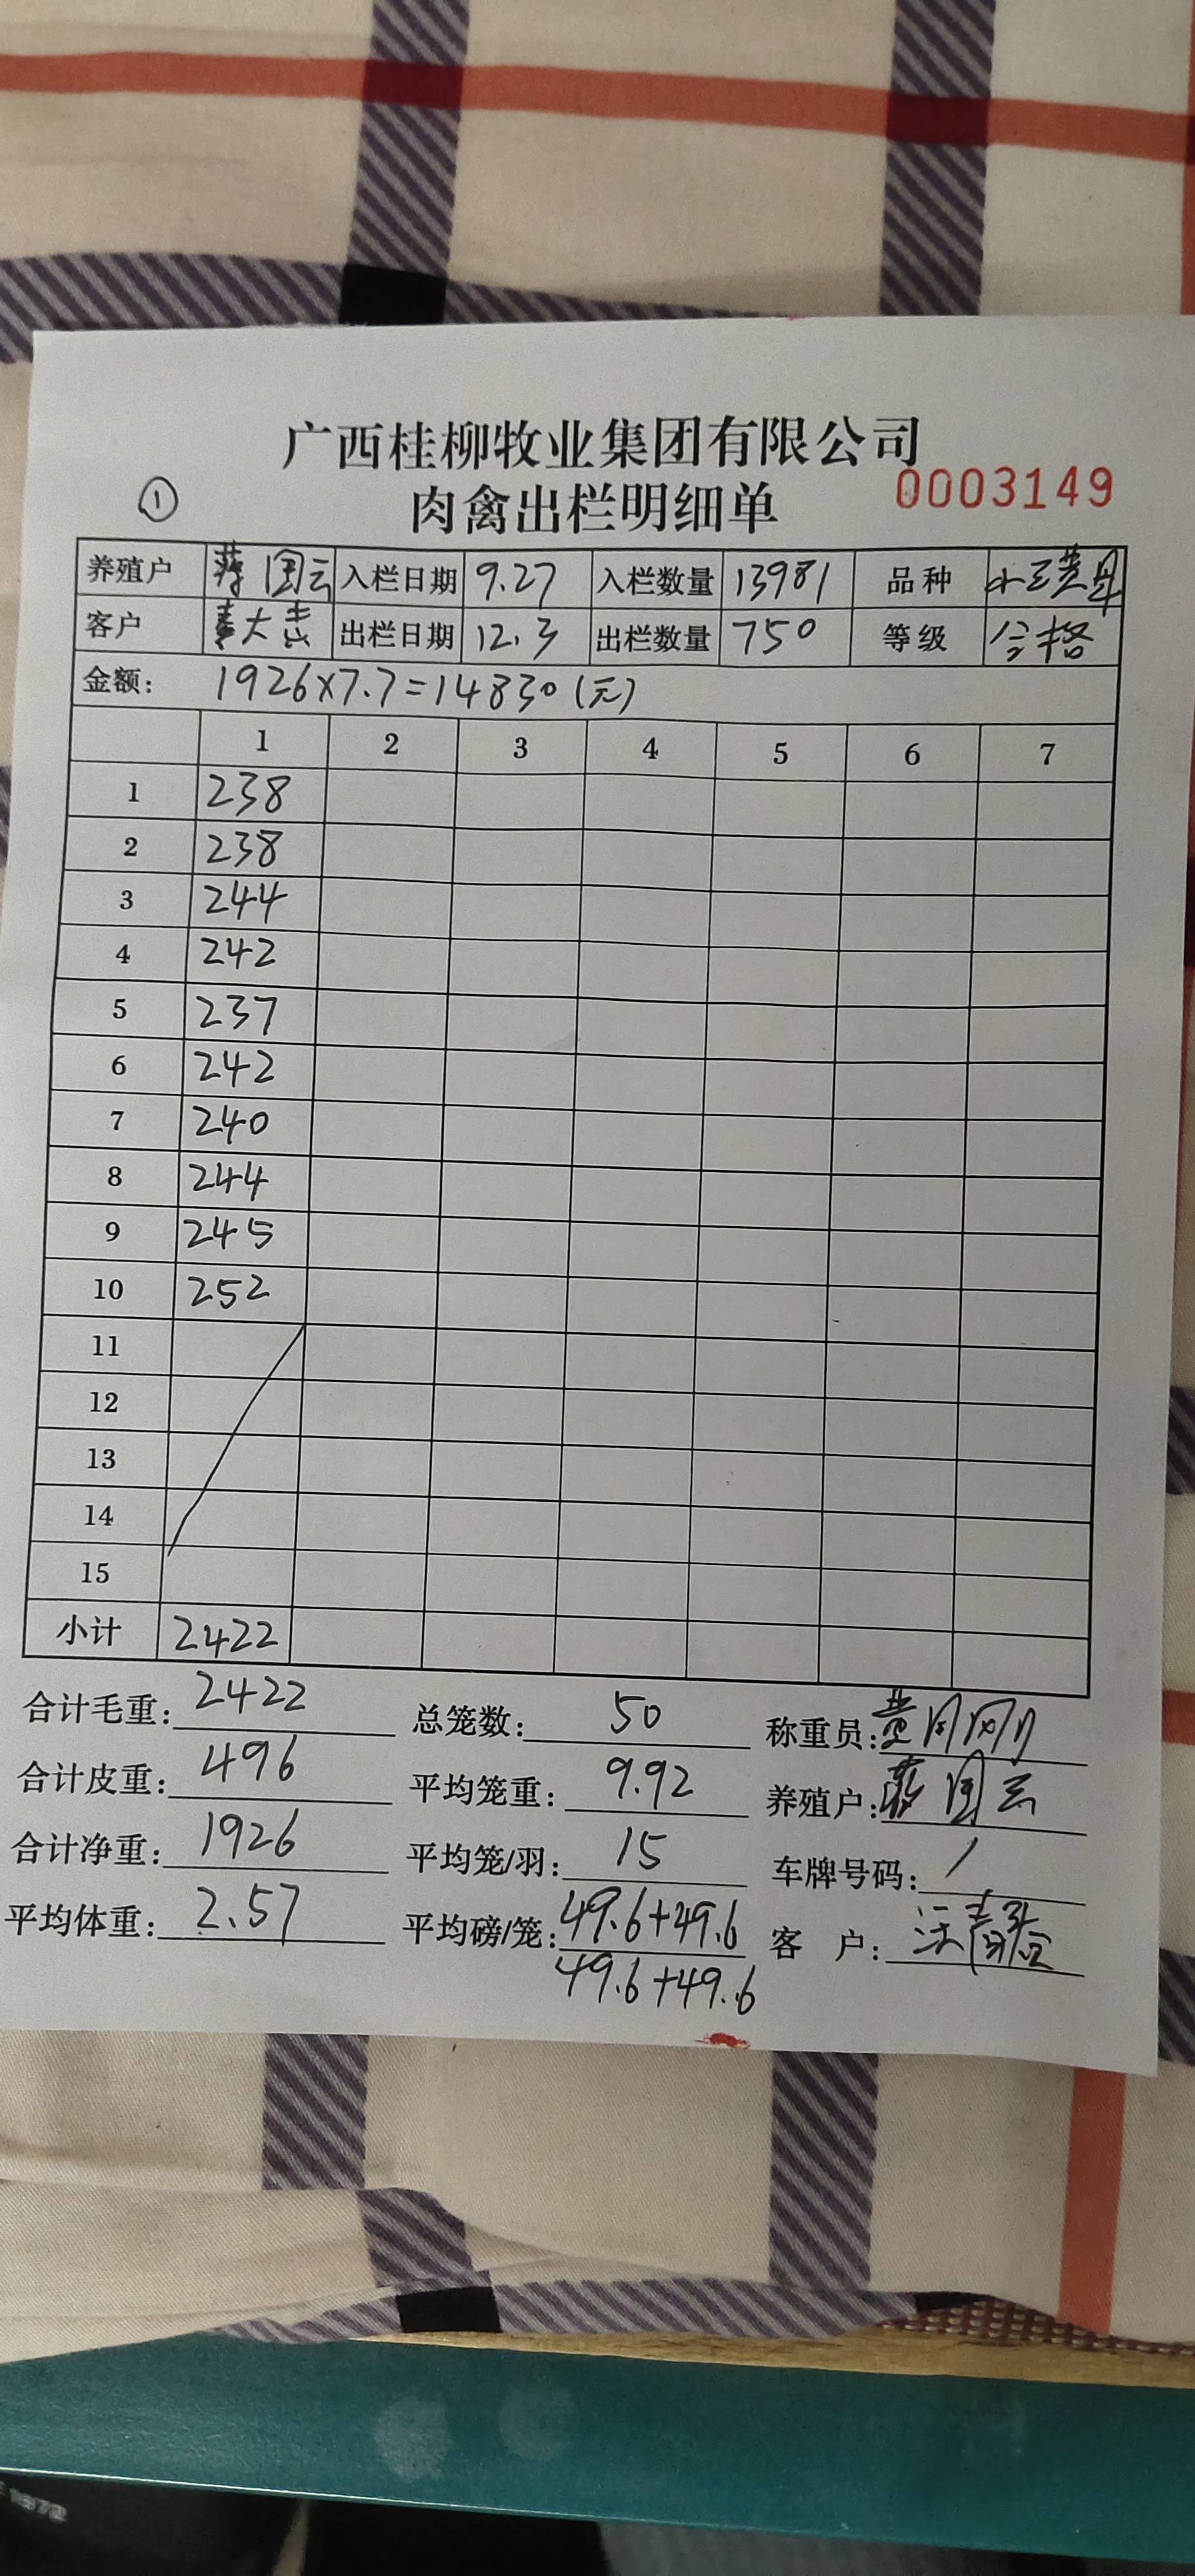 广西桂柳牧业集团有限公司
① 肉禽出栏明细单 0003149
养殖户 蒋国云 入栏日期 9.27 入栏数量 13981 品种
客户 大 出栏日期 12.3 出栏数量 750 等级 合格
金额: 1926×7.7=14830(元)
1 2 3 4 5 6 7
1 238
2 238
3 244
4 242
5 237
6 242
7 240
8 244
9 245
10 252
11
12
13
14
15
小计 2422
合计毛重: 2422 总笼数: 50 称重员:
合计皮重: 496 平均笼重: 9.92 养殖户: 蒋国云
合计净重: 1926 平均笼/羽: 15 车牌号码: /
平均体重: 2.57 平均磅/笼: 49.6+49.6 客 户:
49.6+49.6